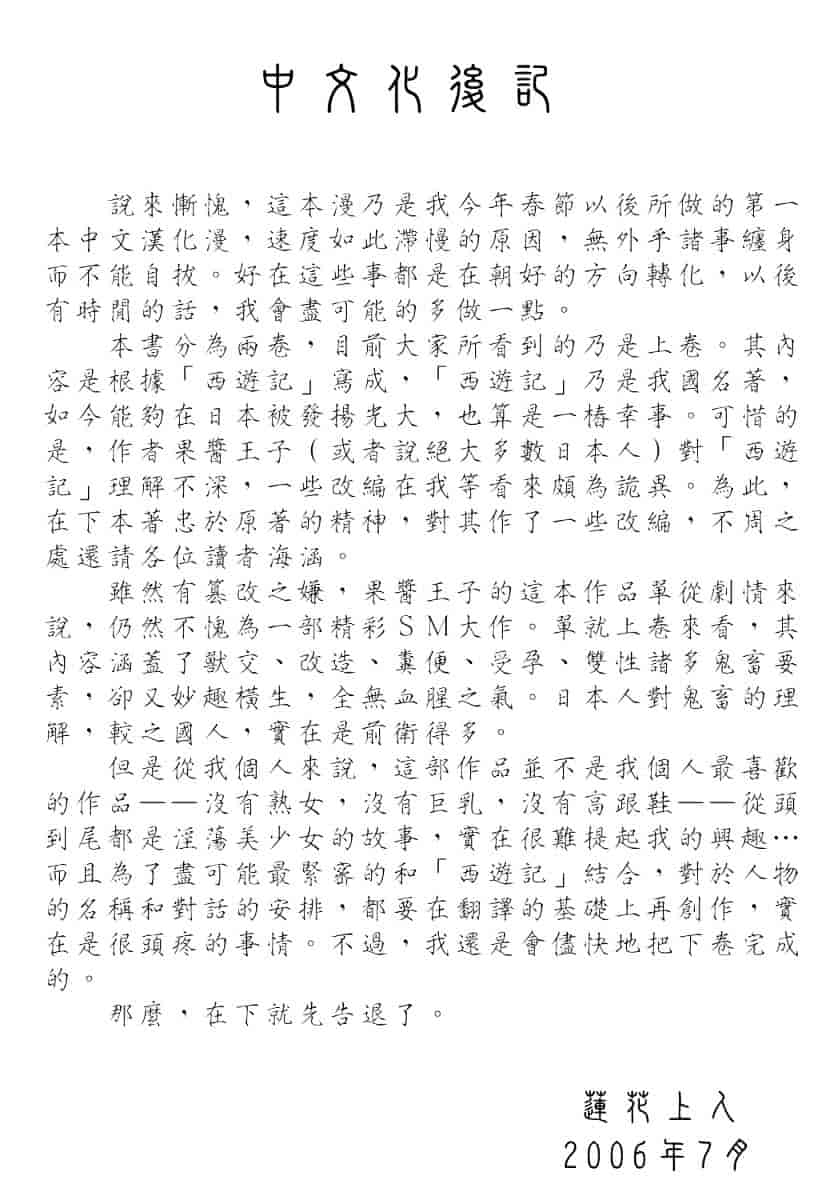 中文化後記
說來慚愧，這本漫乃是我今年春節以後所做的第一
本中文漢化漫，速度如此滯慢的原因，無外乎諸事纏身
而不能自拔。好在這些事都是在朝好的方向轉化，以後
有時閒的話，我會盡可能的多做一點。
本書分為兩卷，目前大家所看到的乃是上卷。其內
容是根據「西遊記」寫成，「西遊記」乃是我國名著，
如今能夠在日本被發揚光大，也算是一樁幸事。可惜的
是，作者果醬王子（或者說絕大多數日本人）對「西遊
記」理解不深，一些改編在我等看來頗為詭異。為此，
在下本著忠於原著的精神，對其作了一些改編，不周之
處還請各位讀者海涵。
雖然有篡改之嫌，果醬王子的這本作品單從劇情來
說，仍然不愧為一部精彩SM大作。單就上卷來看，其
內容涵蓋了獸交、改造、糞便、受孕、雙性諸多鬼畜要
素，卻又妙趣橫生，全無血腥之氣。日本人對鬼畜的理
解，較之國人，實在是前衛得多。
但是從我個人來說，這部作品並不是我個人最喜歡
的作品——沒有熟女，沒有巨乳，沒有高跟鞋——從頭
到尾都是淫蕩美少女的故事，實在很難提起我的興趣…
而且為了盡可能最緊密的和「西遊記」結合，對於人物
的名稱和對話的安排，都要在翻譯的基礎上再創作，實
在是很頭疼的事情。不過，我還是會儘快地把下卷完成
的。
那麼，在下就先告退了。
蓮花上人
2006年7月